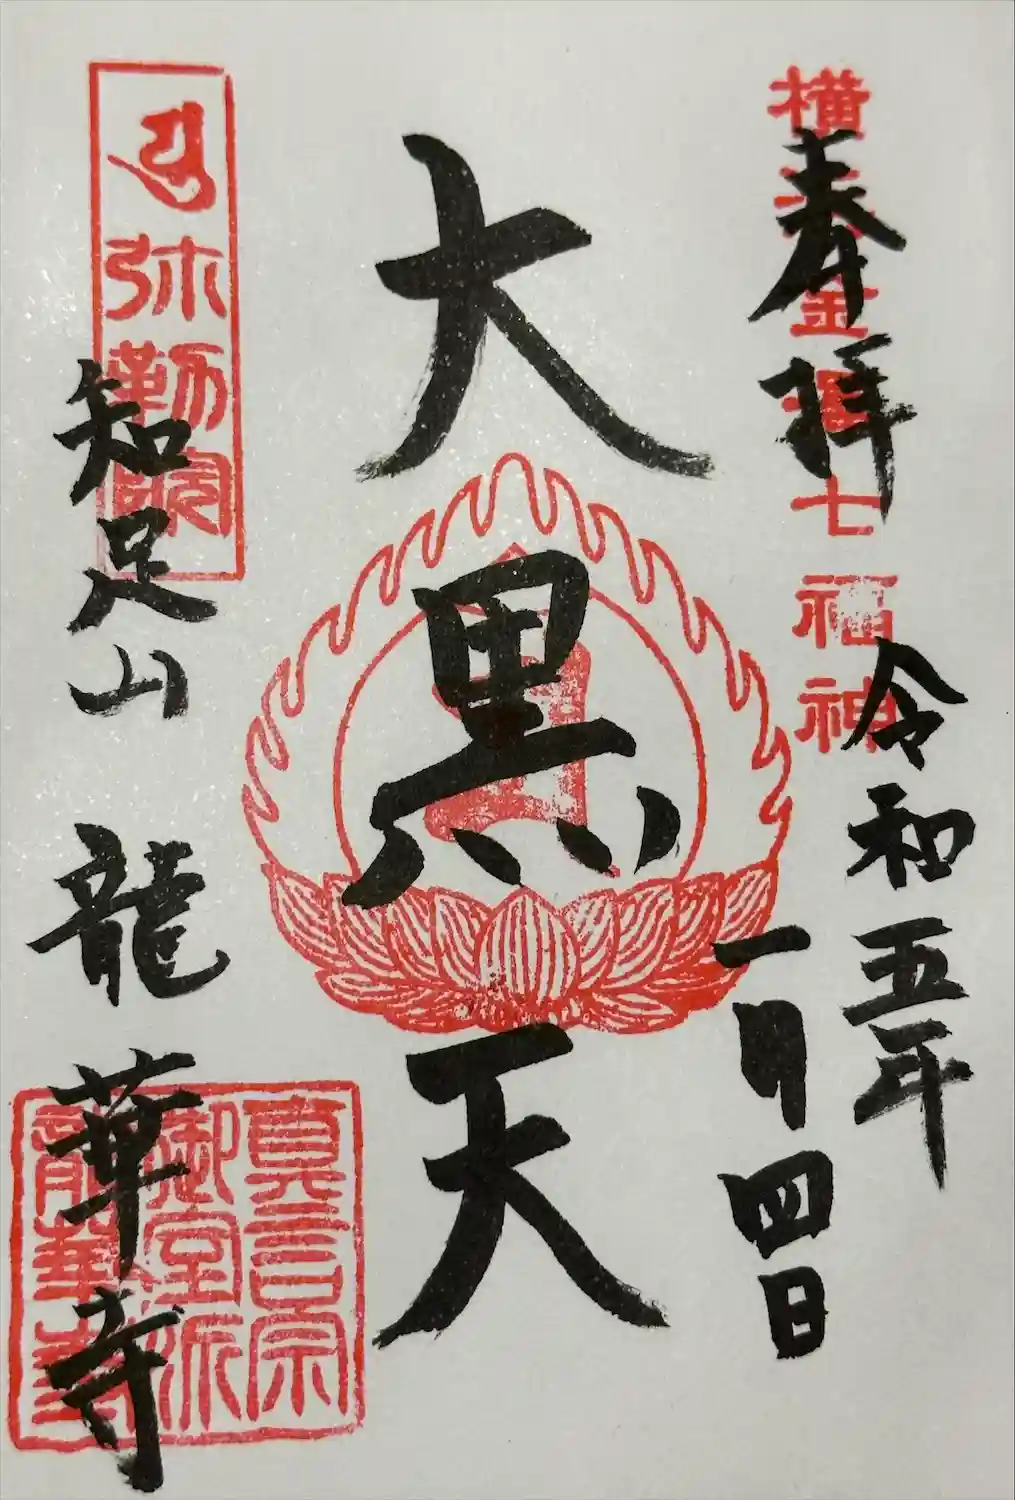 奉拝
横浜金澤七福神
令和五年
一月四日
大黒天
弥勒院
知足山
龍華寺
真言宗
御室派
龍華寺